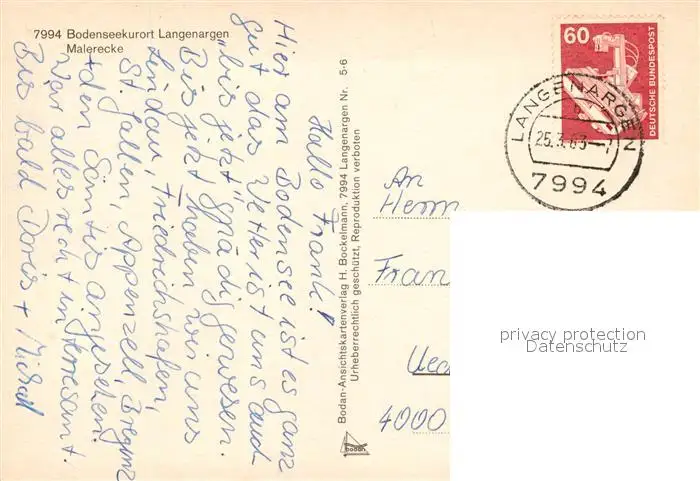 7994 Bodenseekurort Langenargen
Malerecke
Hallo Frank!
Hier am Bodensee ist es ganz
gut das Wetter ist uns auch
"bis jetzt" gnädig gewesen.
Bis jetzt haben wir uns
Lindau, Friedrichshafen,
St. Gallen, Appenzell, Bregenz
+ den Säntis angesehen.
War alles recht interressant.
Bis bald Doris + Michael
Bodan-Ansichtskartenverlag H. Bockelmann, 7994 Langenargen Nr. 5-6
Urheberrechtlich geschützt, Reproduktion verboten
bodan
60
DEUTSCHE BUNDESPOST
LANGENARGEN
25.3.83
7994
An
Herrn
Fran
Ued
4000
privacy protection
Datenschutz